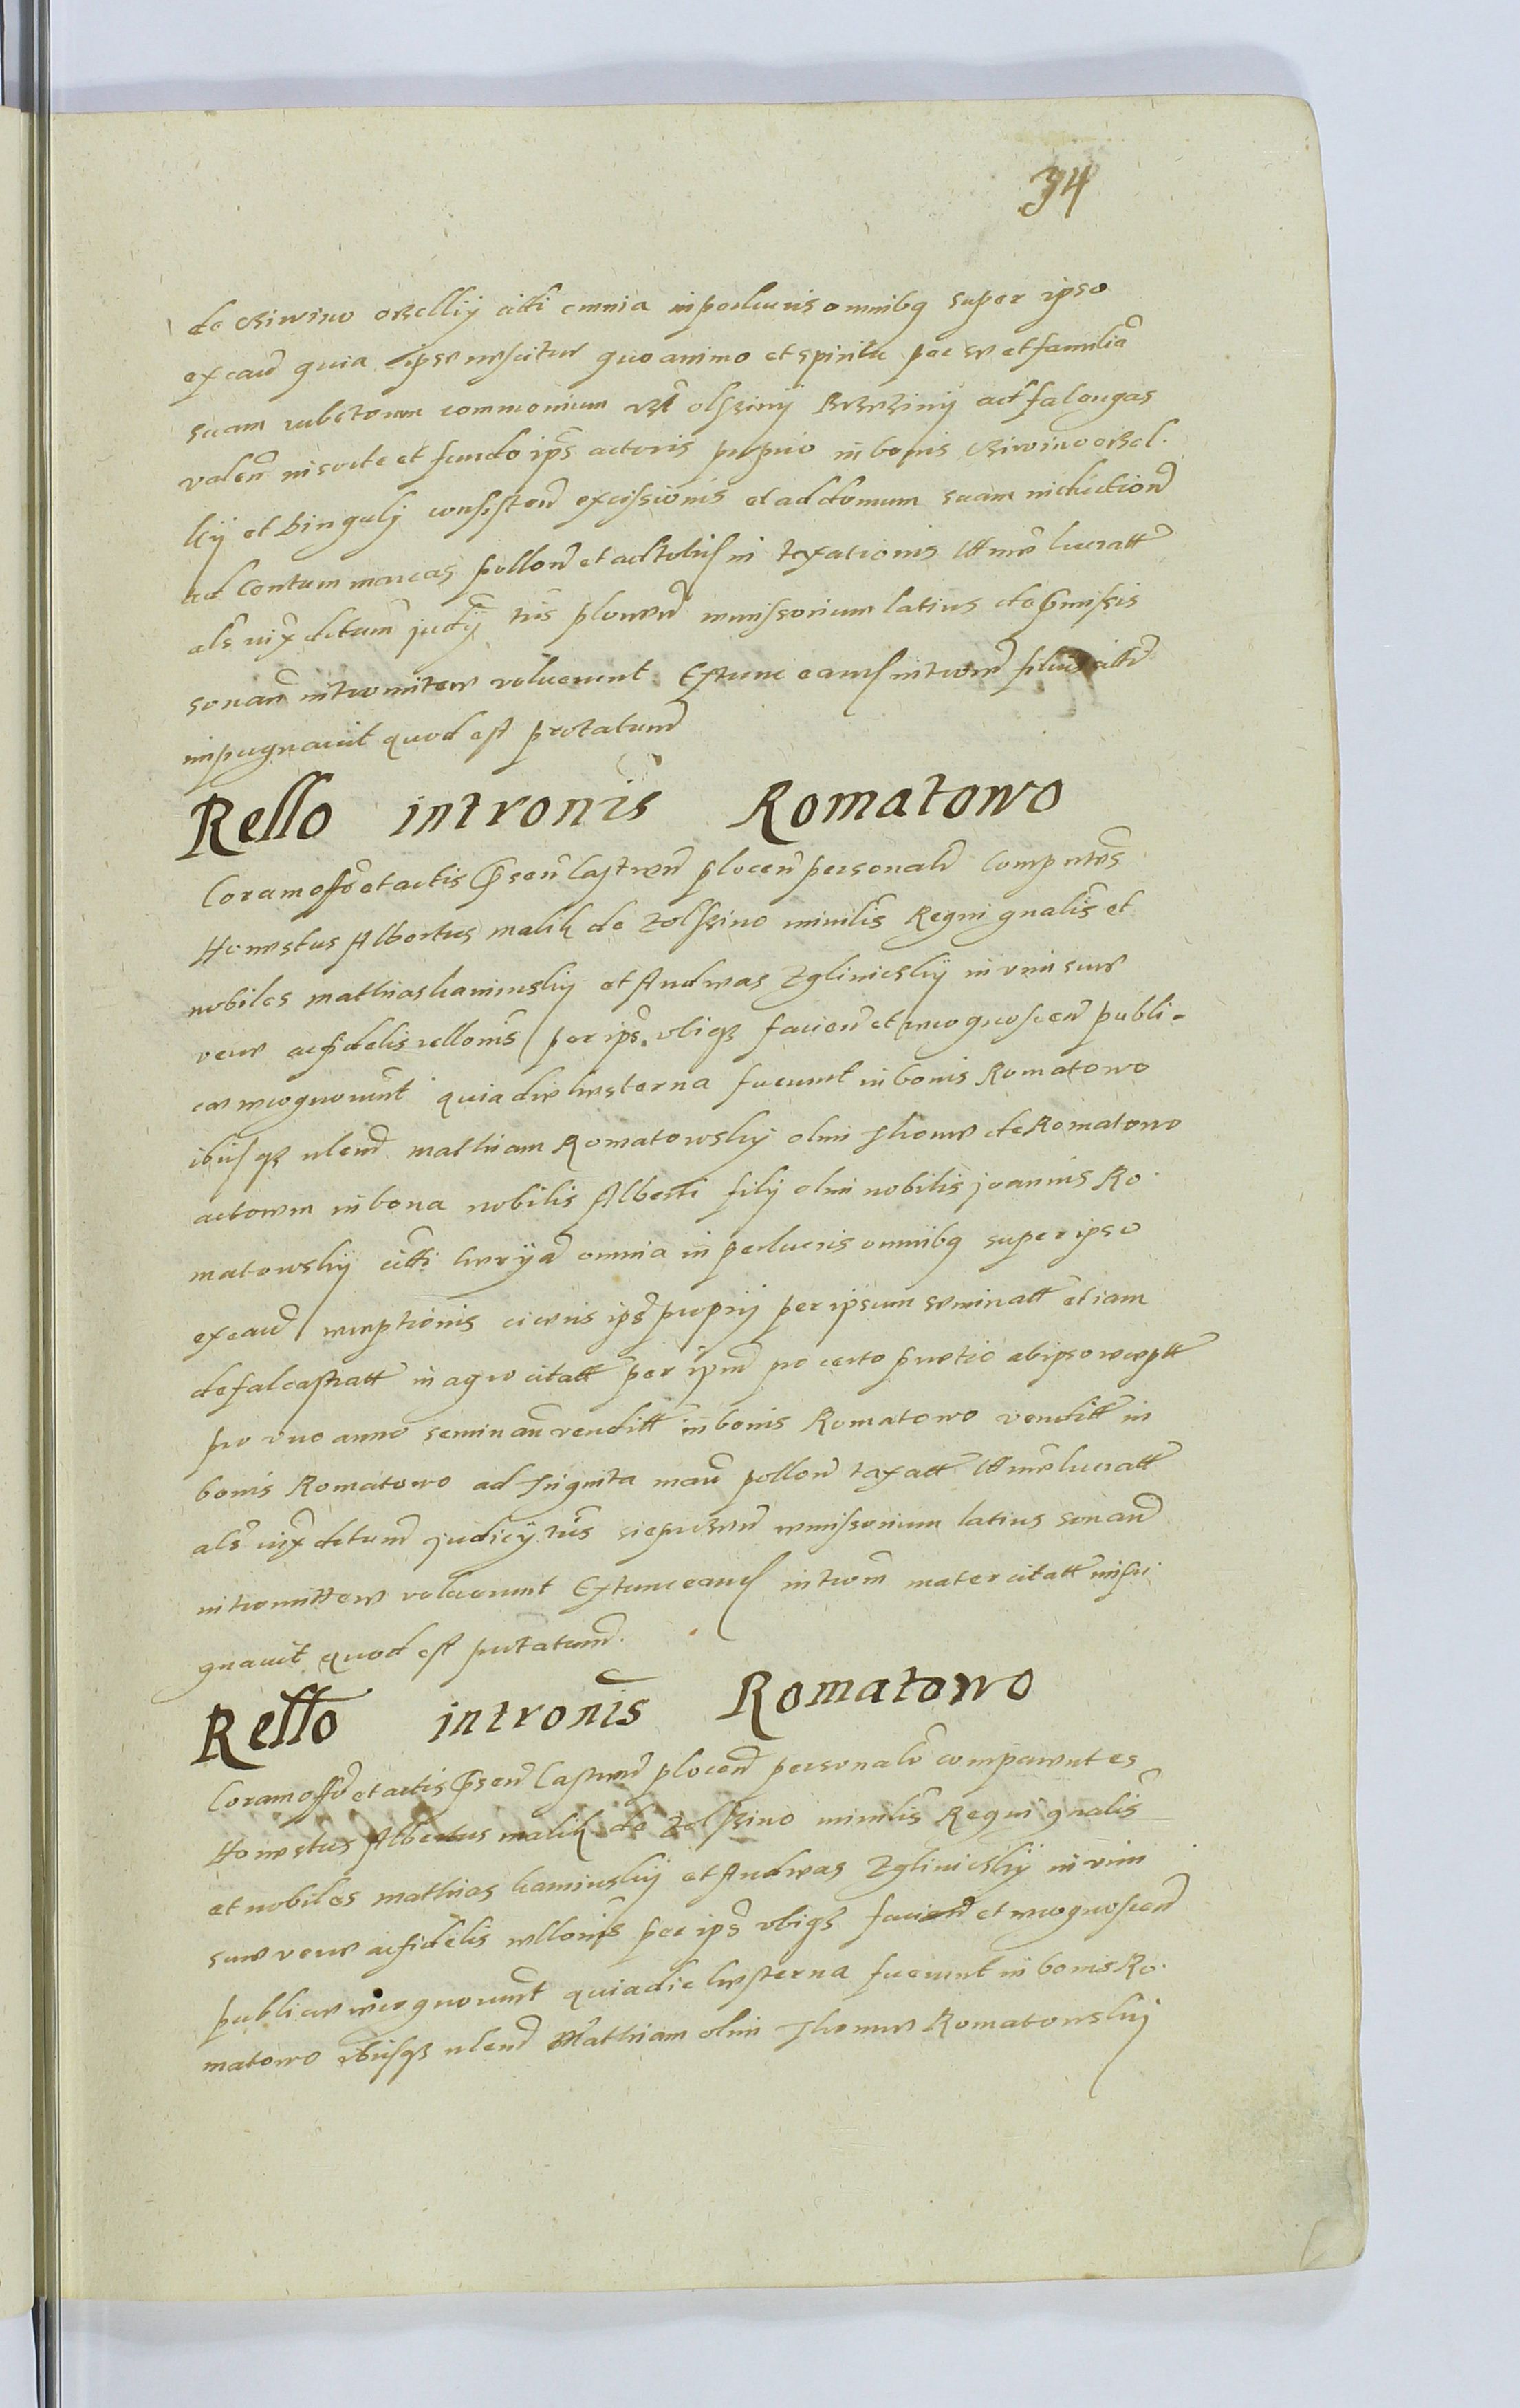 34
de Siwino orszelij citti omnia in perlucris omnibq super ipso
exeaud quia ipse nescitur quo animo et spiritu per se et familia
suam rubetorum commonium olszinij Brzezinij ad falangas
valen in sorte et fundo ips actoris proprio in bonis Siwino orszel
kij et Singulij consisten excissionis et ad domum suam inductiond
ad Centum marcas pollon et ad totius in taxationis lucratt
als iux detum judij tris plocen remissorium latius de pmissis
sonan intromitere voluerunt Extunc eand introm filius citti
impugnauit quod est protatum
Rello intronis Romatowo
Coram offo et actis psen Castren plocen personalr compntes
Honestus Albertus malik de zolszino minilis Regni gnalis et
nobiles mathias kaminskij et Andreas Zglinicskij in vim sue
vere ac fidelis rellonis per ips vbiqz facien et recognoscen publi-
ce recognouernt quia die hesterna fuerunt in bonis Romatowo
ibiqz volend mathiam Romatowskij olim Thome de Romatowo
actorem in bona nobilis Alberti filij olim nobilis joannis Ro
matowskij citti omnia in perlucris omnibq super ipso
exeaud receptionis ips proprij per ipsum seminatt etiam
defalcastratt in agro citatt per ipm pro certo pretio ab ipso receptt
pro vno anno seminan venditt in bonis Romatowo venditt in
bonis Romatowo ad Triginta marc pollon taxatt lucratt
als iux detum judicij tris siepreczen remissorium latius sonand
intromittere voluerunt Extunc eand introm mater citatt impu
gnauit quod est protatum.
Rello intronis Romatowo
Coram offo et actis psen Castren plocen personalr comparentes
Honestus Albertus malik de zolszino minilis Regni gnalis
et nobiles mathias kaminskij et Andreas Zglinicskij in vim
sue vere ac fidelis rellonis per ips vbiqz facien et recognoscen
publice recognouernt quia die hesterna fuerunt in bonis Ro
matowo ibiqz volend Mathiam olim Thome Romatowskij